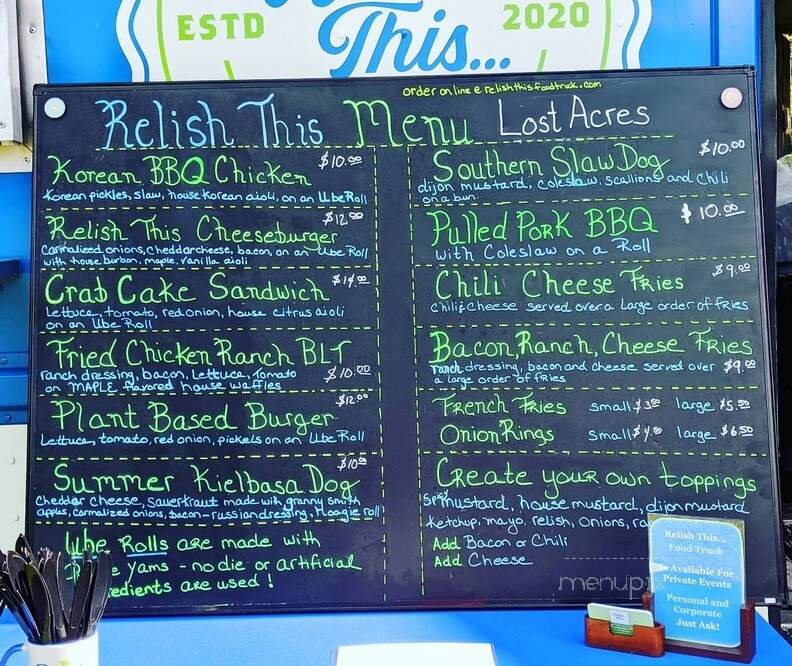 ESTD
2020
This...
order online @ relishthisfoodtruck.com
Relish This Menu Lost Acres
Korean BBQ Chicken $10.00
Korean pickles, slaw, house korean aioli, on an Ube Roll
Relish This Cheeseburger $12.00
Carmalized onions, cheddar cheese, bacon, on an Ube Roll
with house burbon, maple, vanilla aioli
Crab Cake Sandwich $14.00
Lettuce, tomato, red onion, house citrus aioli
on an Ube Roll
Fried Chicken Ranch BLT
ranch dressing, bacon, Lettuce, Tomato $10.00
on MAPLE flavored house waffles
Plant Based Burger $12.00
Lettuce, tomato, red onion, pickels on an Ube Roll
Summer Kielbasa Dog $10.00
Cheddar cheese, sauerkraut made with granny smith
apples, carmalized onions, bacon-russian dressing, Hoagie roll
Ube Rolls are made with
yams - no die or artificial
are used!
Southern Slaw Dog $10.00
dijon mustard, coleslaw, scallions and chili
on a bun
Pulled Pork BBQ $10.00
with Coleslaw on a Roll
Chili Cheese Fries $9.00
Chili & Cheese served over a Large order of fries
Bacon, Ranch, Cheese Fries
ranch dressing, bacon and cheese served over $9.00
a large order of fries
French Fries small $3.50 large $5.50
Onion Rings small $4.50 large $6.50
Create your own toppings
Spicy mustard, house mustard, dijon mustard
Ketchup, mayo, relish, onions,
Add Bacon or Chili
Add Cheese
menupi
Relish This...
Food Truck
Is Available For
Private Events
Personal and
Corporate
Just Ask!